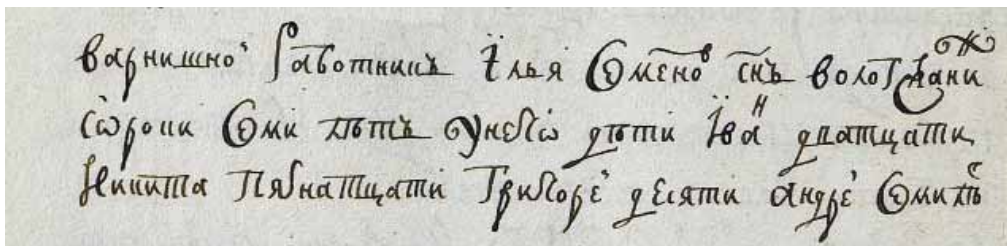 варнишной работникъ Илья Семеновъ сн҃ъ вологжани
сѡроки Семи лѣтъ унегѡ дѣти Иванъ дватцати
Никита пятнатцати Григореи десяти андреи Семи лѣт